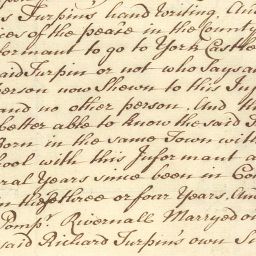 s Turpin's hand Writing. And
ices of the peace in the County
formant to go to York Castle
aid Turpin or not who Says an
erson now Shewn to this Inf
and no other person. And th
better able to know the said T
Born in the same Town with
ool with this Informant a
ral Years since been in Com
n these three or four Years. And
Pompr Rivernall Marryed on
said Richard Turpin's own Si